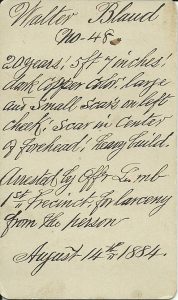 Walter Bland
No-48.
20 years! 5ft 7 inches!
dark Copper Color: large
and Small Scars on left
cheek! Scar in Center
of forehead! heavy build.
Arrested by Offr
1st Precinct. for larceny
from the person
August 14th 1884.